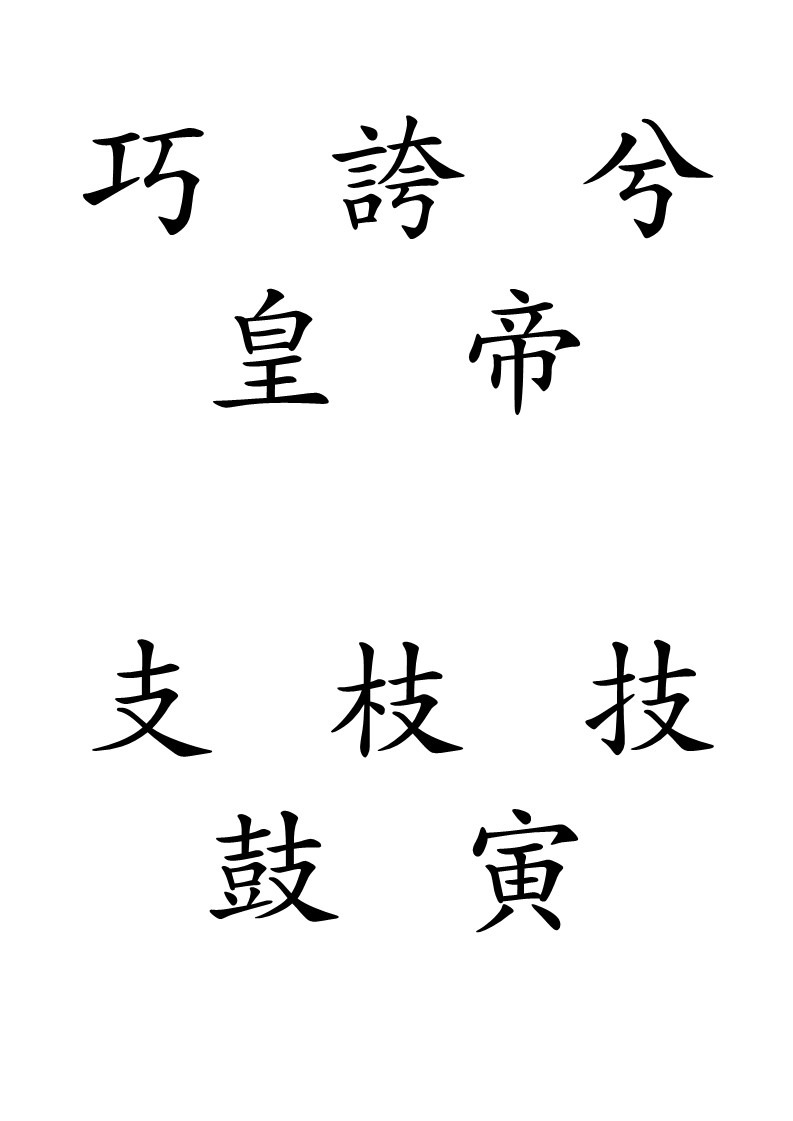 巧 誇 兮
皇 帝
支 枝 技
鼓 寅